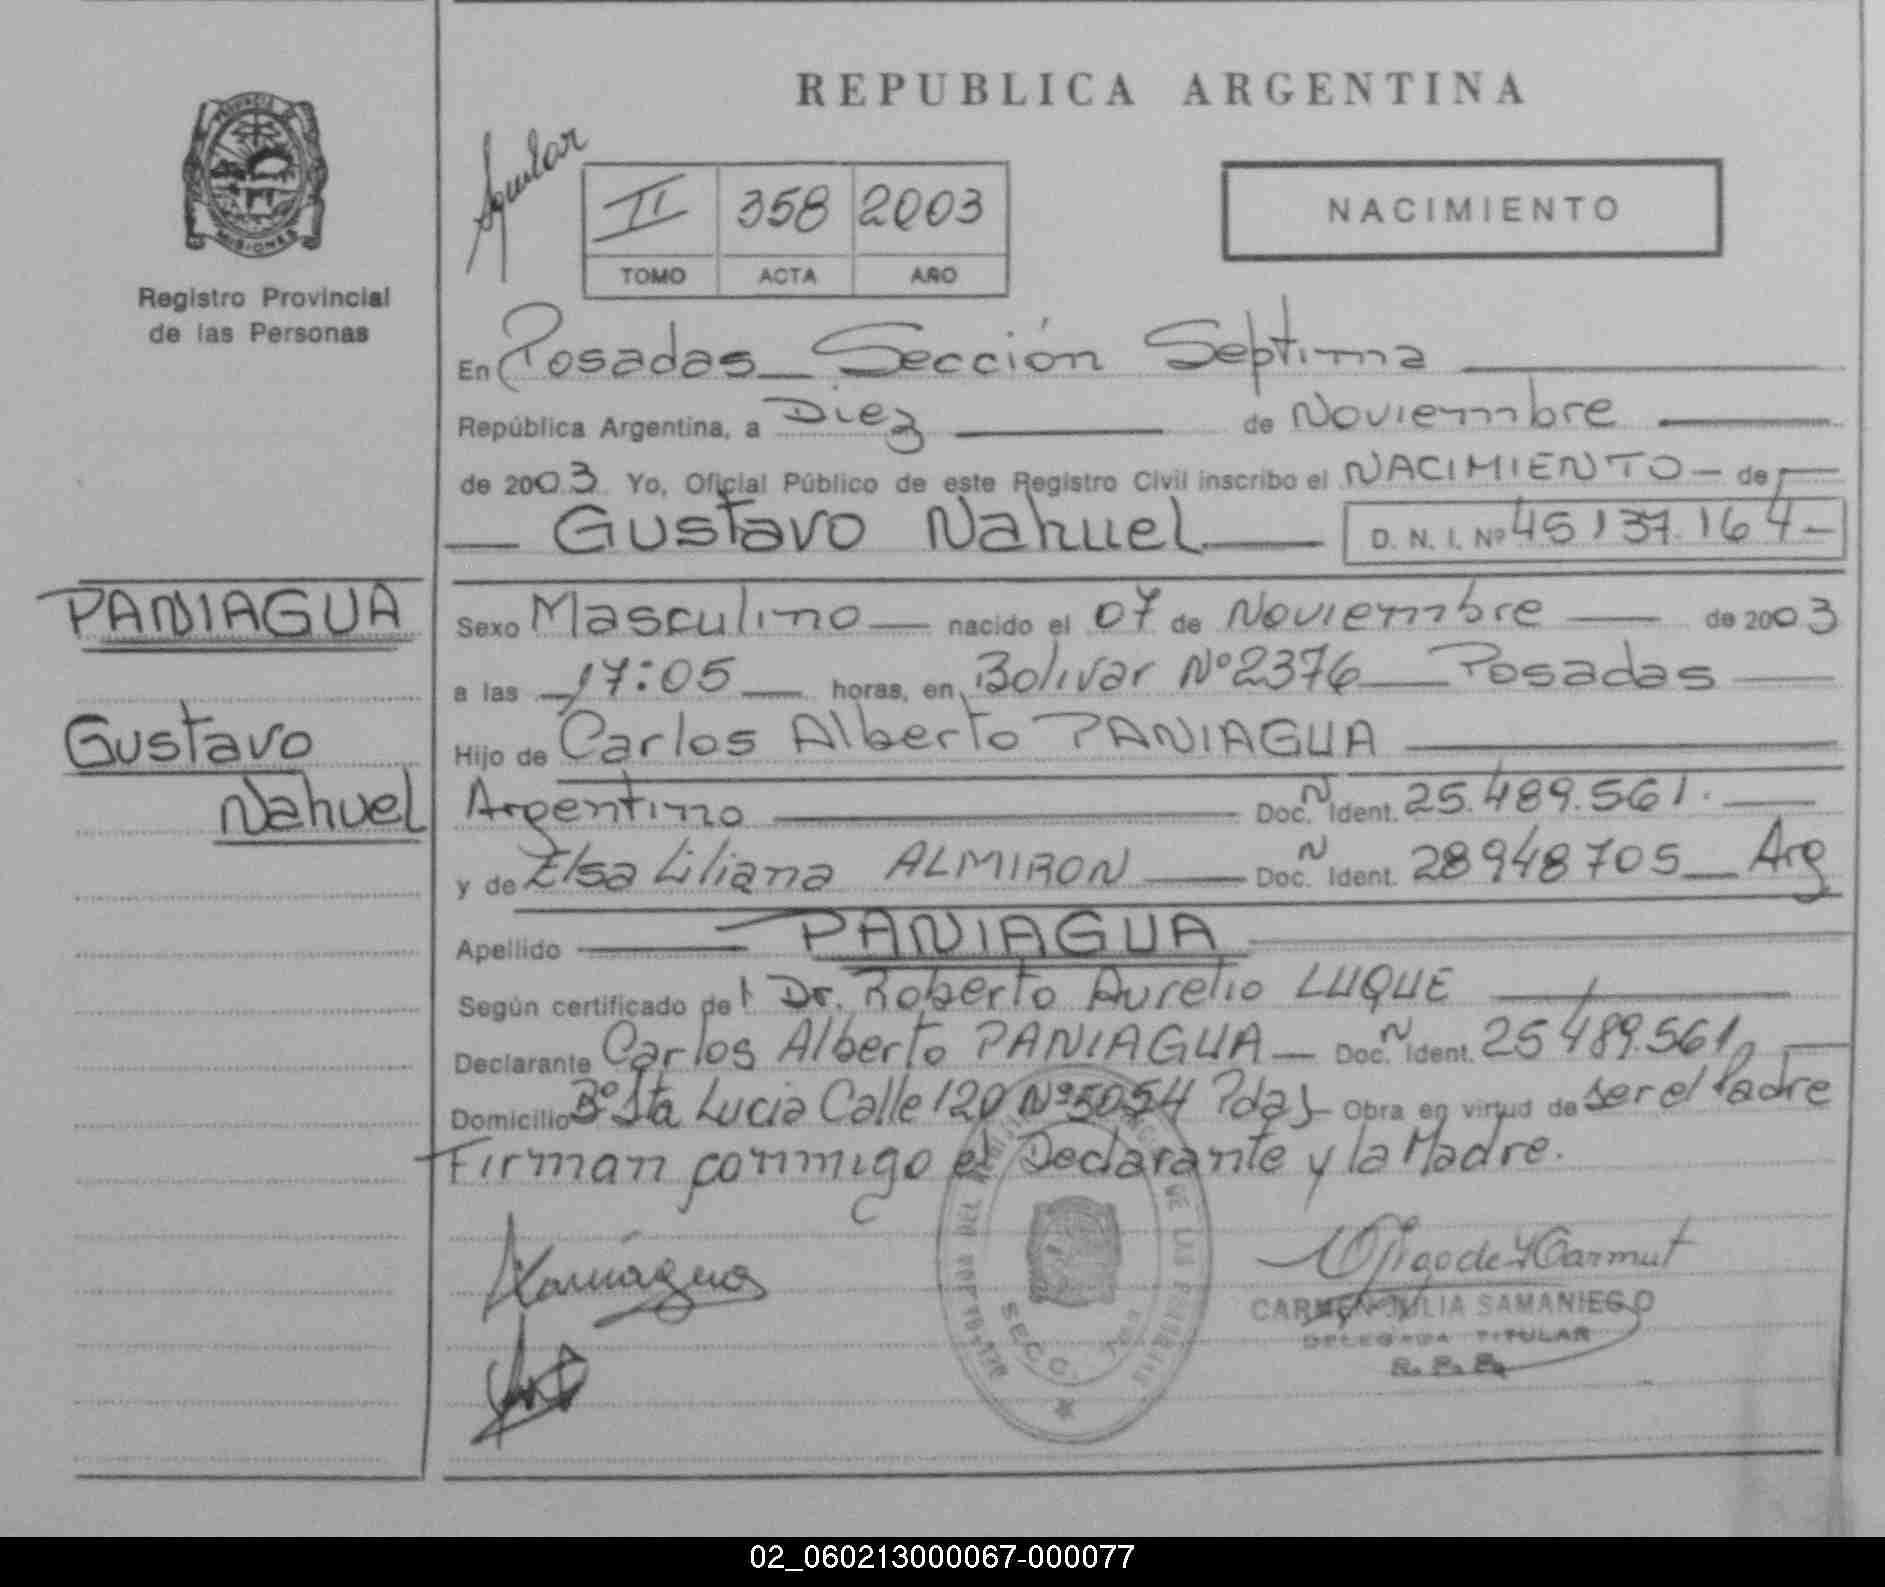 REPUBLICA ARGENTINA
PROVINCIA
MISIONES
Registro Provincial
de las Personas
Aguilar
II 358 2003
TOMO ACTA AÑO
NACIMIENTO
En Posadas Sección Septima
República Argentina, a Diez de Noviembre
de 2003 Yo, Oficial Público de este Registro Civil inscribo el NACIMIENTO de
Gustavo Nahuel D. N. I. Nº 45137.164
PANIAGUA
Gustavo
Nahuel
Sexo Masculino nacido el 07 de Noviembre de 2003
a las 17:05 horas, en Bolivar Nº 2376 Posadas
Hijo de Carlos Alberto PANIAGUA
Argentino Doc. N Ident. 25.489.561.
y de Elsa Liliana ALMIRON Doc. N Ident. 28948705 Arg
Apellido PANIAGUA
Según certificado del Dr. Roberto Aurelio LUQUE
Declarante Carlos Alberto PANIAGUA Doc. N Ident. 25489.561
Domicilio Bº Sta Lucia Calle 120 Nº 5054 Pdas Obra en virtud de ser el Padre
Firman conmigo el Declarante y la Madre.
Paniagua
CARMEN JULIA SAMANIEGO
DELEGADA TITULAR
R. P. P.
SECC.
DE LAS
02_060213000067-000077